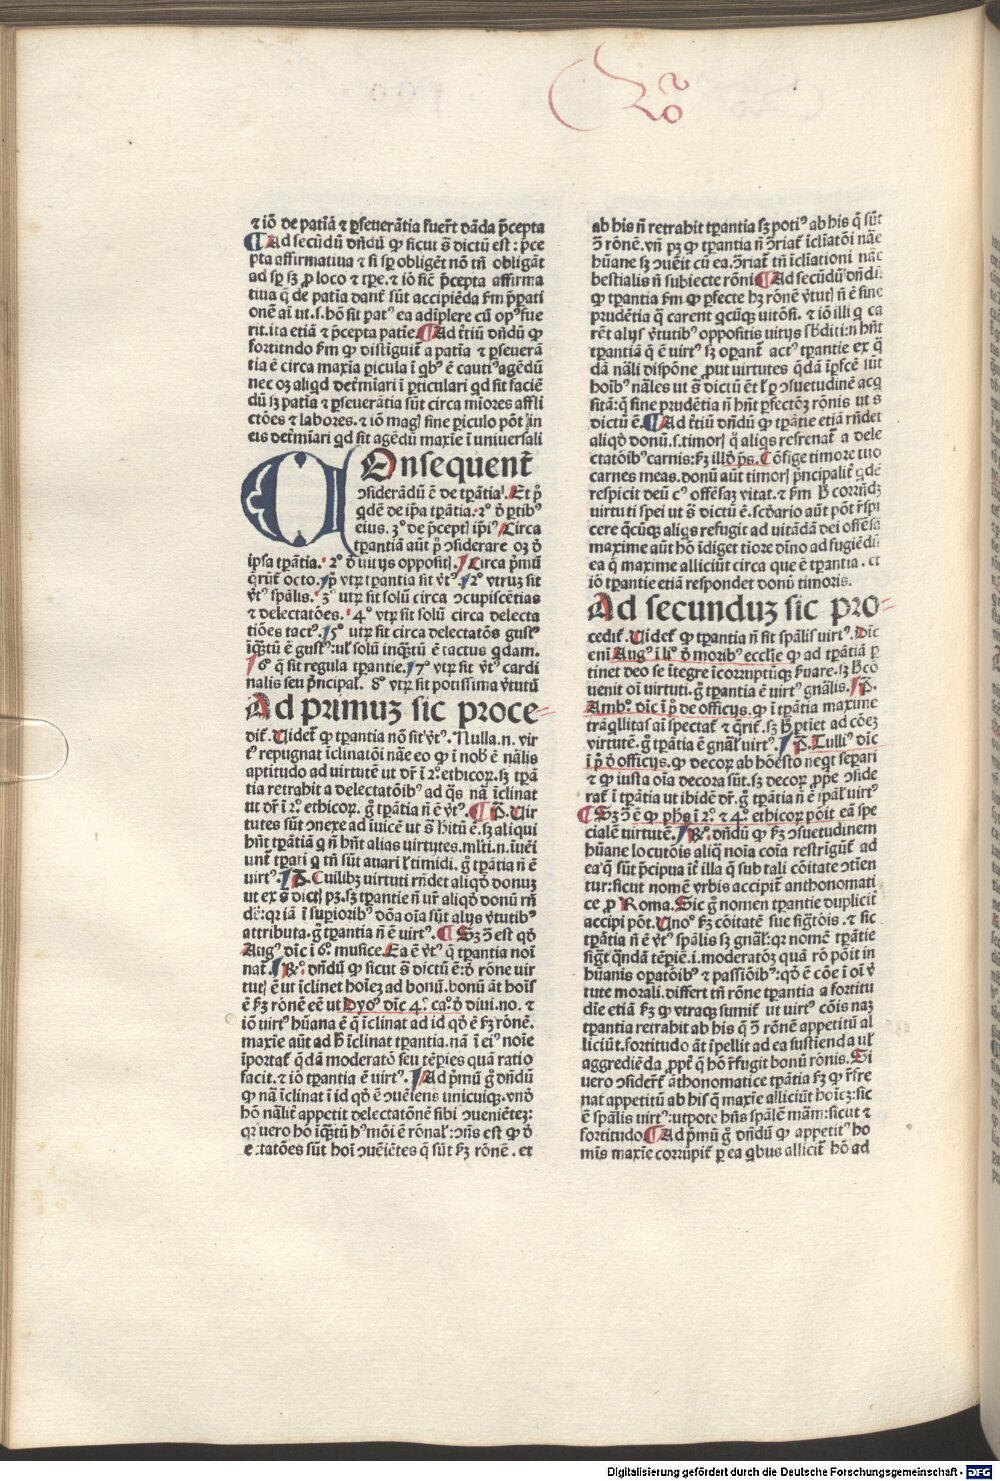 ⁊ iō de patiā ⁊ ꝑseuerātia fuerūt dāda p̄cepta
Ad secūdū dn̄dū ꝙ sicut s̄ dictū est: p̄ce
pta affirmatiua ⁊ si sꝑ obligēt nō tn̄ obligāt
ad sꝑ sꝫ ꝓ loco ⁊ tꝑe. ⁊ iō sic̄ p̄cepta affirma
tiua q̄ de patiā dant᷑ sūt accipiēda ẜm p̄ꝑati
onē ai ut. s. hō sit patꝰ ea adiplere cū opꝰ fue
rit. ita etiā ⁊ p̄cepta patīe. Ad t̄tiū dn̄dū ꝙ
fortitudo ẜm ꝙ distiguit᷑ a patīa ⁊ ꝑseuerā
tia ē circa maxīa ꝑicula ī qͥbꝰ ē cautiꝰ agēdū
nec oꝫ aliqͥd det̄mīari ī ꝑticulari qͥd sit faciē
dū sꝫ patīa ⁊ ꝑseuerātia sūt circa mīores affli
ctōes ⁊ labores. ⁊ iō magꝭ sine ꝑiculo pōt in
eis det̄mīari qͥd sit agēdū maxīe ī uniuersali
COnsequent᷑
ↄsiderādū ē de tꝑātia. Et pͥ
qͥdē de ip̄a tꝑātia. 2º ð ꝑtibꝰ
eius. 3º de p̄ceptꝭ ip̄iꝰ. Circa
tꝑantiā aūt pͥ ↄsiderare oꝫ ð
ipsa tꝑātia. 2º ð uitijs oppositꝭ. Circa pͥmū
q̄rūt᷑ octo. pͥ utꝝ tꝑantia sit v̄tꝰ. 2º utruꝫ sit
v̄tꝰ sp̄alis. 3º utꝝ sit solū circa ↄcupiscētias
⁊ delectatōes. 4º vtꝝ sit solū circa delecta
tiōes tactꝰ. 5º utꝝ sit circa delectatōs gustꝰ
iꝙ̄tū ē gustꝰ: ul̄ solū inqͣ̄tū ē tactus qͥdam.
6º q̄ sit regula tꝑantie. 7º vtꝝ sit v̄tꝰ cardi
nalis seu p̄ncipal᷑. 8º vtꝝ sit potissima v̄tutū
Ad primuꝫ sic proce=
dit᷑. Uidet᷑ ꝙ tꝑantia nō sit v̄tꝰ. Nulla. n. vir
tꝰ repugnat īclinatōi nāe eo ꝙ ī nobꝭ ē nālis
aptitudo ad uirtutē ut dr̄ ī 2º ethicoꝝ. sꝫ tꝑā
tia retrahit a delectatōibꝰ ad q̄s nā īclinat
ut dr̄ ī 2º ethicoꝝ. g̊ tꝑātia n̄ ē v̄tꝰ. P̄. Uir
tutes sūt ↄnexe ad īuicē ut s̄ hitū ē. sꝫ aliqui
hn̄t tꝑātiā q n̄ hn̄t alias virtutes. mlti. n. īuēi
unt᷑ tꝑati q tn̄ sūt auari ul̄ timidi. g̊ tꝑātia n̄ ē
uirtꝰ. P̄. Cuilibꝫ virtuti rn̄det aliqð donuꝫ
ut ex s̄ dictꝭ pꝫ. sꝫ tꝑantie n̄ ur̄ aliqð donū rn̄
dē: qꝛ iā ī suꝑioribꝰ dōa oīa sūt alijs v̄tutibꝰ
attributa. g̊ tꝑantia n̄ ē uirtꝰ. Sꝫ ↄ̄ est qð
Augꝰ dīc ī 6º musice. Ea ē v̄tꝰ q̄ tꝑantia noī
nat᷑. R̄º dn̄dū ꝙ sicut s̄ dictū ē: ð rōne uir
tutꝭ ē ut īclinet hoīeꝫ ad bonū. bonū āt hoīs
ē ẜꝫ rōnē eē ut Dyoº dīc 4º caº ð diui. no. ⁊
iō uirtꝰ hūana ē q̄ īclinat ad id qð ē ẜꝫ rōnē.
maxīe aūt ad h̄ īclinat tꝑantia. nā ī eiꝰ noīe
īportat᷑ q̄dā moderatō seu tēꝑies quā ratio
facit. ⁊ iō tꝑantia ē uirtꝰ. Ad pͥmū g̊ dn̄dū
ꝙ nā īclinat ī id qð ē ↄuēiens unicuiqꝫ. vnð
hō nāliē appetit delectatōnē sibi ↄueniēteꝫ:
qꝛ uero hō iꝙ̄tū hꝰmōi ē rōnal᷑: ↄn̄s est ꝙ ð
ectatōes sūt hoī ↄuēiētes q̄ sūt ẜꝫ rōnē. et
ab his n̄ retrahit tꝑantia sꝫ potiꝰ ab his q̄ sūt
ↄ̄ rōnē. vn̄ pꝫ ꝙ tꝑantia n̄ ↄ̄riat᷑ īcl̄iatōi nāe
hūane sꝫ ↄuēit cū ea. ↄ̄riat᷑ tn̄ īcl̄iationi nāe
bestialis n̄ subiecte rōni. Ad secūdū dn̄dū
ꝙ tꝑantia ẜm ꝙ ꝑfecte hꝫ rōnē v̄tutꝭ n̄ ē sine
prudētia q̄ carent qͥcūqꝫ uitōsi. ⁊ iō illi q ca
rēt alijs v̄tutibꝰ oppositis uitijs sb̄diti: n hn̄t
tꝑantiā q̄ ē uirtꝰ sꝫ oꝑant᷑ actꝰ tꝑantie ex q̄
dā nāli dispōne ꝓut virtutes q̄dā īꝑfcē sūt
hoībꝰ nāles ut s̄ dictū ē ul̄ ꝑ ↄsuetudinē acq
sitā: q̄ sine prudētia n̄ hn̄t ꝑfectōꝫ rōnis ut s̄
dictū ē. Ad t̄tiū dn̄dū ꝙ tꝑātie etiā rn̄det
aliqð donū. s. timorꝭ q̊ aliqͥs refrenat᷑ a dele
ctatōibꝰ carnis: ẜꝫ illð ps̄. Cōfige timore tuo
carnes meas. donū aūt timorꝭ p̄ncipalit᷑ qͥdē
respicit deū cꝰ offēsaꝫ vitat. ⁊ ẜm h̄ corrn̄dꝫ
virtuti spei ut s̄ dictū ē. scd̄ario aūt pōt r̄spi
cere q̄cūqꝫ aliqͥs refugit ad uitādā dei offēsā
maxime aūt hō īdiget tiore dīno ad fugiēdū
ea q̄ maxime alliciūt circa que ē tꝑantia. et
iō tꝑantie etiā respondet donū timoris.
Ad secunduꝫ sic pro=
cedit᷑. Uidet᷑ ꝙ tꝑantia n̄ sit sp̄alis uirtꝰ. Dīc
enī Augꝰ ī li. ð moribꝰ eccl̄ie ꝙ ad tꝑātiā ꝑ
tinet deo se ītegre īcorruptūqꝫ ẜuare. sꝫ h̄ cō
uenit oī virtuti. g̊ tꝑantia ē uirtꝰ gn̄alis. P̄.
Ambꝰ dīc ī pͥ de officijs. ꝙ ī tꝑātia maxime
trāqͥllitas ai spectat᷑ ⁊ q̄rit᷑. sꝫ h̄ ꝑtiet ad cōeꝫ
virtutē. g̊ tꝑātia ē gn̄al᷑ uirtꝰ. P̄. Tulliꝰ dīc
ī pͥ ð officijs. ꝙ decoꝝ ab hōesto neqͥt seꝑari
⁊ ꝙ iusta oīa decora sūt. sꝫ decoꝝ ꝓpͥe ↄside
rat᷑ ī tꝑātia ut ibidē dr̄. g̊ tꝑātia n̄ ē sp̄al᷑ uirtꝰ
Sꝫ ↄ̄ ē ꝙ ph̄s ī 2º ⁊ 4º ethicoꝝ pōit eā spe
cialē uirtutē. R̄º dn̄dū ꝙ ẜꝫ ↄsuetudinem
hūane locutōis aliq̄ noīa cōia restrīgūt᷑ ad
ea q̄ sūt p̄cipua īt᷑ illa q̄ sub tali cōitate ↄtīen
tur: sicut nomē vrbis accipit᷑ anthonomati
ce ꝓ Roma. Sic g̊ nomen tꝑantie duplicit᷑
accipi pōt. Unoº ẜꝫ cōitatē sue sigt̄ōis. ⁊ sic
tꝑātia n̄ ē v̄tꝰ sp̄alis sꝫ gn̄al᷑: qꝛ nomē tꝑātie
sigt᷑ qͣndā tēꝑiē. i. moderatōꝫ quā rō pōit in
hūanis oꝑatōibꝰ ⁊ passiōibꝰ: qð ē cōe ī oī v̄
tute morali. differt tn̄ rōne tꝑantia a fortitu
dīe etiā ẜꝫ ꝙ vtraqꝫ sumit᷑ ut uirtꝰ cōis naꝫ
tꝑantia retrahit ab his q̄ ↄ̄ rōnē appetitū al
liciūt. fortitudo āt īpellit ad ea sustīenda ul̄
aggrediēda ꝓpt᷑ q̄ hō r̄fugit bonū rōnis. Si
uero ↄsideret᷑ āthonomatice tꝑātia ẜꝫ ꝙ r̄fre
nat appetitū ab hisꝭ q̄ maxīe alliciūt hoīeꝫ: sic
ē sp̄alis uirtꝰ: utpote hn̄s sp̄alē mām: sicut ⁊
fortitudo. Ad pͥmū g̊ dn̄dū ꝙ appetitꝰ ho
mīs maxīe corrūpit᷑ ꝑ ea qͥbus allicit᷑ hō ad
Digitalisierung gefördert durch die Deutsche Forschungsgemeinschaft - DFG